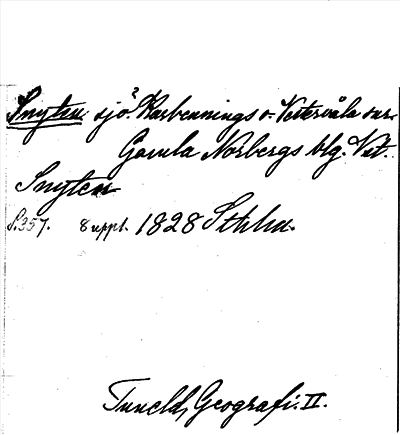 Snyten sjö? Karbennings o. Vestervåla snr.
Gamla Norbergs blg. Vst.
Snyten
S.357. 8 uppl. 1828 Sthlm.
Tuneld, Geografi. II.